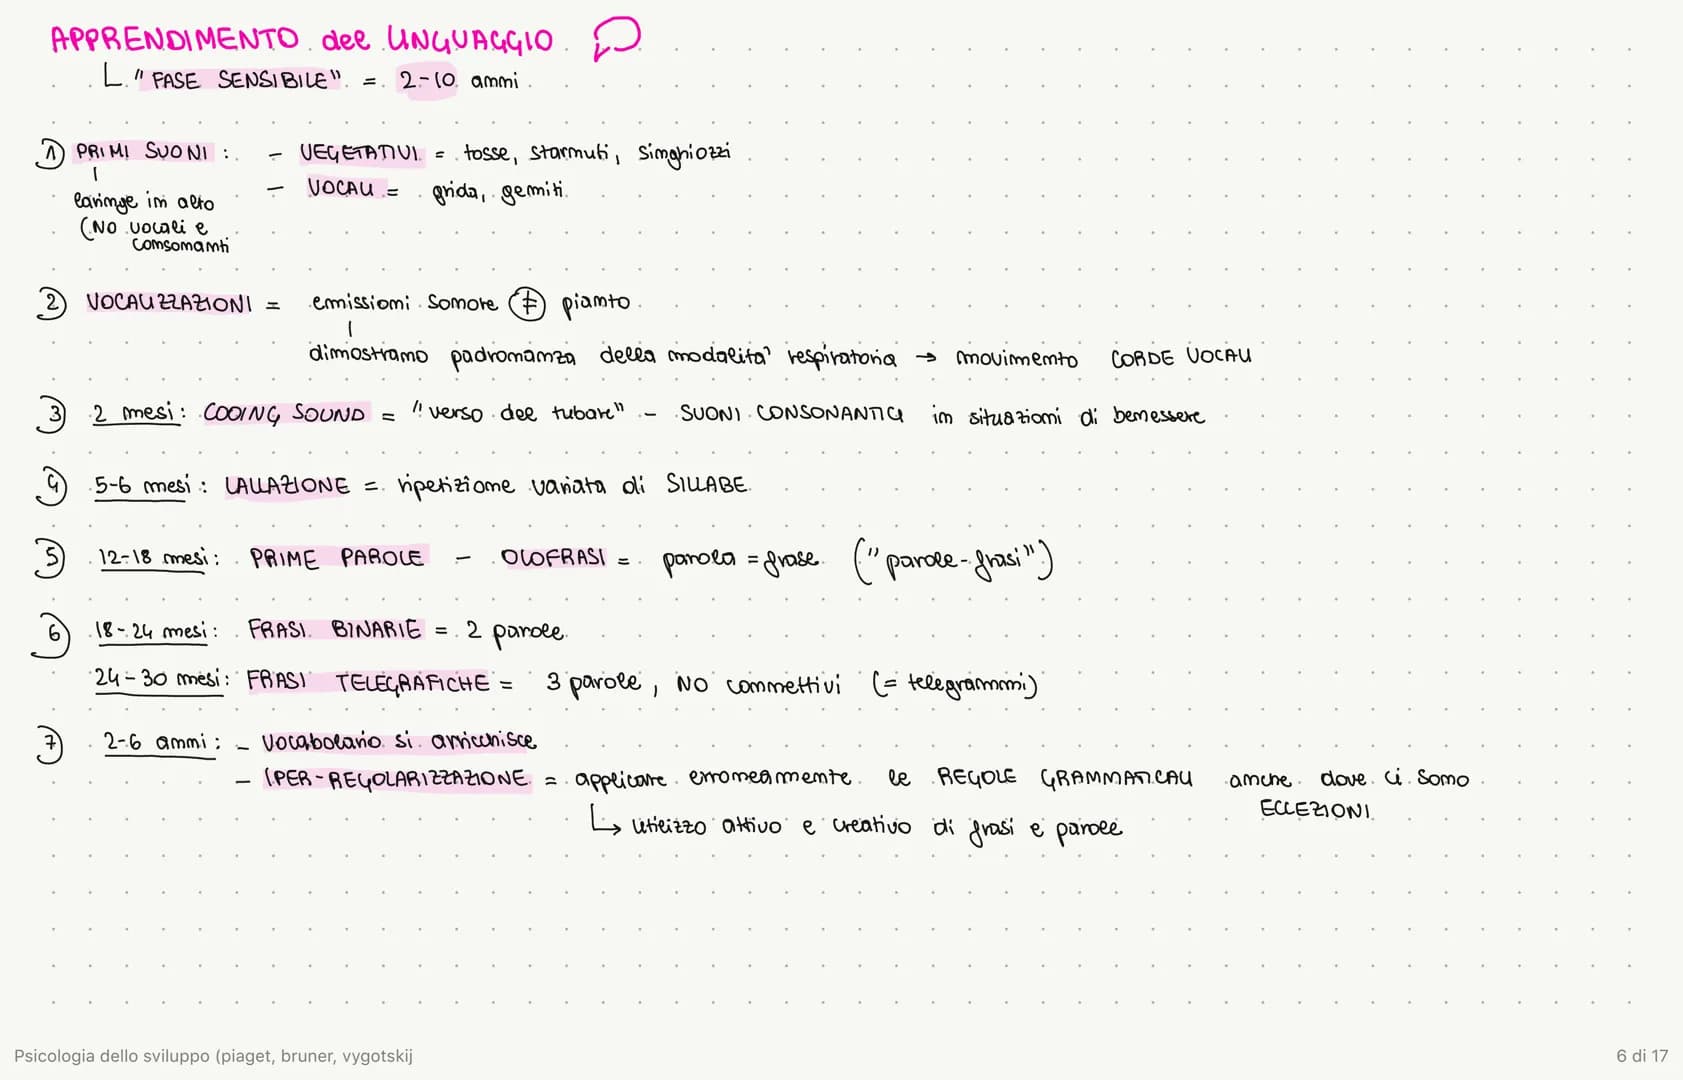 APPRENDIMENTO del LINGUAGGIO
"FASE SENSIBILE" = 2-10 anni
1 PRIMI SUONI : - VEGETATIVI = tosse, starnuti, singhiozzi
- VOCALI = grida, gemiti
laringe in alto
(NO vocali e
consonanti
2 VOCALIZZAZIONI = emissioni sonore ≠ pianto
dimostrano padronanza della modalità respiratoria → movimento CORDE VOCALI
3 2 mesi: COOING SOUND = "verso del tubare" - SUONI CONSONANTICI in situazioni di benessere
4 5-6 mesi: LALLAZIONE = ripetizione variata di SILLABE
5 12-18 mesi: PRIME PAROLE - OLOFRASI = parola = frase ("parole-frasi")
6 18-24 mesi: FRASI BINARIE = 2 parole
24-30 mesi: FRASI TELEGRAFICHE = 3 parole, NO connettivi (= telegrammi)
7 2-6 anni: - vocabolario si arricchisce
- IPER-REGOLARIZZAZIONE = applicare erroneamente le REGOLE GRAMMATICALI anche dove ci sono
ECCEZIONI
↳ utilizzo attivo e creativo di frasi e parole
Psicologia dello sviluppo (piaget, bruner, vygotskij
6 di 17